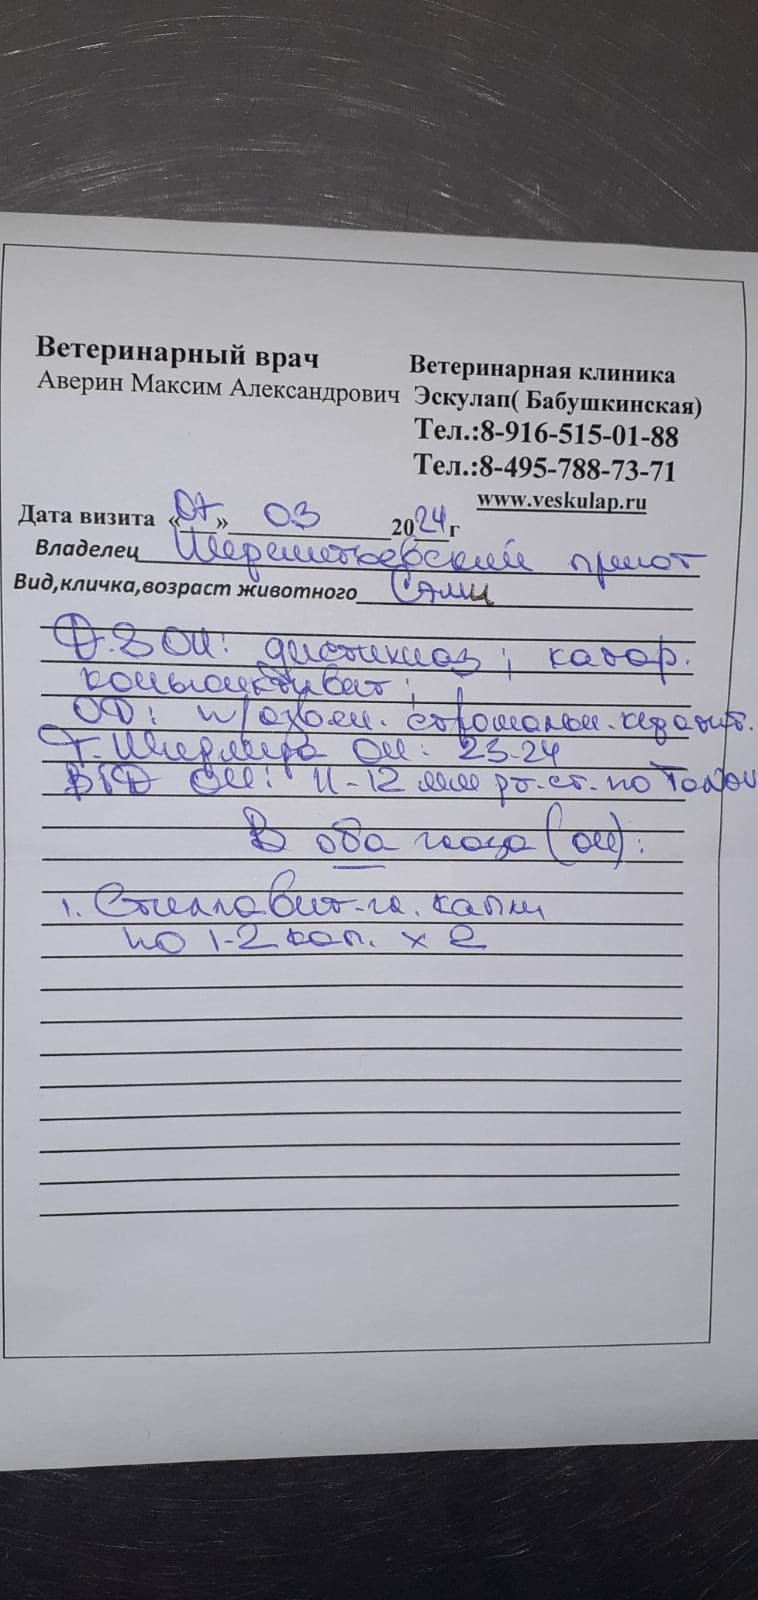 Ветеринарный врач
Аверин Максим Александрович
Ветеринарная клиника
Эскулап( Бабушкинская)
Тел.:8-916-515-01-88
Тел.:8-495-788-73-71
www.veskulap.ru
Дата визита «07» 03 2024г
Владелец Шереметьевский приют
Вид,кличка,возраст животного
OU: дистихиаз; катар.
конъюнктивит;
OD: стромальн. кератит.
Т. Ширмера OU: 23-24
ВГД OU: 11-12 мм рт. ст. по
В оба глаза (OU):
1. Стиллавит-гл. капли
по 1-2 кап. x 2